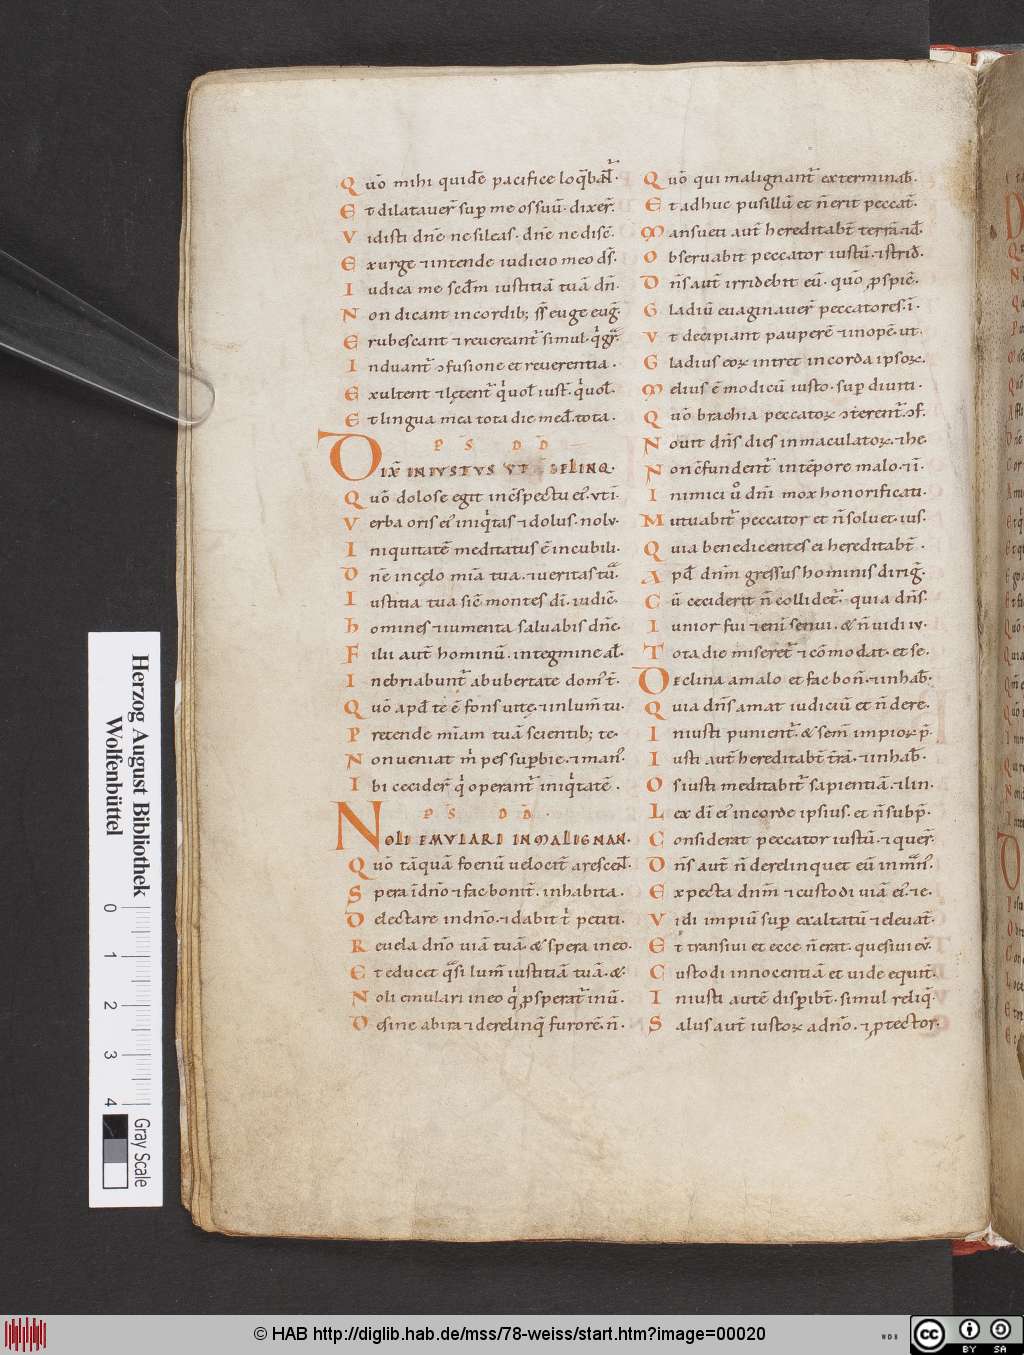 Quō mihi quidē pacifice loq̄bāt̄.
Et dilatauer̄ sup̄ me os suū. dixer̄.
Vidisti dn̄e ne sileas. dn̄e ne disē.
Exurge ⁊ intende iudicio meo ds̄.
Iudica me scd̄m iustitiā tuā dn̄.
Non dicant in cordib; sr̄ euge euḡ.
Erubescant ⁊ reuereant᷒ simul. qͥ gr̄.
Induant᷒ ↄfusione et reuerentia.
Exultent ⁊ lętent᷒ qͥ uol̄ iust̄. qͥ uol̄.
Et lingua mea tota die med̄. tota.
PS DD
Dix̄ iniustus ut delinq.
Quō dolose egit in ↄ̄spectu ei᷒. ut ī
Verba oris ei᷒ iniqͥtas ⁊ dolus. nolv.
Iniquitatē meditatus ē in cubili.
Dn̄e in cęlo mīa tua. ⁊ ueritas tū.
Iustitia tua sič montes dī. iudič.
homines ⁊ iumenta saluabis dn̄e.
Filii aut̄ hominū. in tegmine al̄.
Inebriabunt᷒ ab ubertate dom᷒ t̄.
Quō apd̄ te ē fons uitę. ⁊ in lum̄ tu.
Pretende mīam tuā scientib; te.
Non ueniat m̄ pes sup̄bie. ⁊ man᷒.
Ibi cecider̄ qͥ operant᷒ iniqͥtatē.
PS DD.
Noli emulari in malignan.
Quō tāquā foenū uelocit̄ arescen̄.
Spera ī dn̄o ⁊ fac bonit̄. inhabita.
Delectare in dn̄o. ⁊ dabit t̄ petiti.
Reuela dn̄o uiā tuā. & spera in eo.
Et educet qͣsi lum̄ iustitiā tuā. &.
Noli emulari in eo qͥ ꝓsperat᷒ in ū.
Desine ab ira ⁊ derelinq̄ furorē. n̄.
Quō qui malignant᷒ exterminab̄.
Et adhuc pusillū et n̄ erit peccat̄.
Mansueti aut̄ hereditabt̄ terrā. ⁊ d̄.
Obseruabit peccator iustū. ⁊ strid̄.
Dn̄s aut̄ irridebit eū. quō ꝓspič.
Gladiū euaginauer̄ peccatores. ī.
Vt decipiant pauperē ⁊ inopē. ut.
Gladius eoꝝ intret in corda ipsoꝝ.
Melius ē modicū iusto. sup̄ diuiti.
Quō brachia peccatoꝝ ↄterent᷒. ↄf.
Nouit dn̄s dies inmaculatoꝝ. ⁊ he.
Non ↄ̄fundent᷒ in tēpore malo. ⁊ ī.
Inimici uͦ dn̄i mox honorificati.
Mutuabit᷒ peccator et n̄ soluet. ius.
Quia benedicentes ei hereditabt̄.
Apd̄ dn̄m gressus hominis diriḡ.
Cū ceciderit n̄ collidet᷒. quia dn̄s.
Iunior fui ⁊ enī senui. & n̄ uidi iv.
Tota die miseret᷒ ⁊ cōmodat. et se.
Declina a malo et fac bon̄. ⁊ inhab̄.
Quia dn̄s amat iudiciū et n̄ dere.
Iniusti punient᷒. & sem̄ impioꝝ p̄.
Iusti aut̄ hereditabt̄ t̄rā. ⁊ inhab̄.
Os iusti meditabit᷒ sapientiā. ⁊ lin.
Lex dī ei᷒ in corde ipsius. et n̄ subp̄.
Considerat peccator iustū. ⁊ quer̄.
Dn̄s aut̄ n̄ derelinquet eū in mān᷒.
Expecta dn̄m ⁊ custodi uiā ei᷒. ⁊ e.
Vidi impiū sup̄ exaltatū ⁊ eleuat̄.
Et transiui et ecce n̄ erat. quesiui ev̄.
Custodi innocentiā et uide equit̄.
Iniusti autē disp̄ibt̄. simul reliq̄.
Salus aut̄ iustoꝝ a dn̄o. ⁊ ꝓtector.
Herzog August Bibliothek
Wolfenbüttel
0 1 2 3 4
Gray Scale
© HAB http://diglib.hab.de/mss/78-weiss/start.htm?image=00020
WDB
cc BY SA